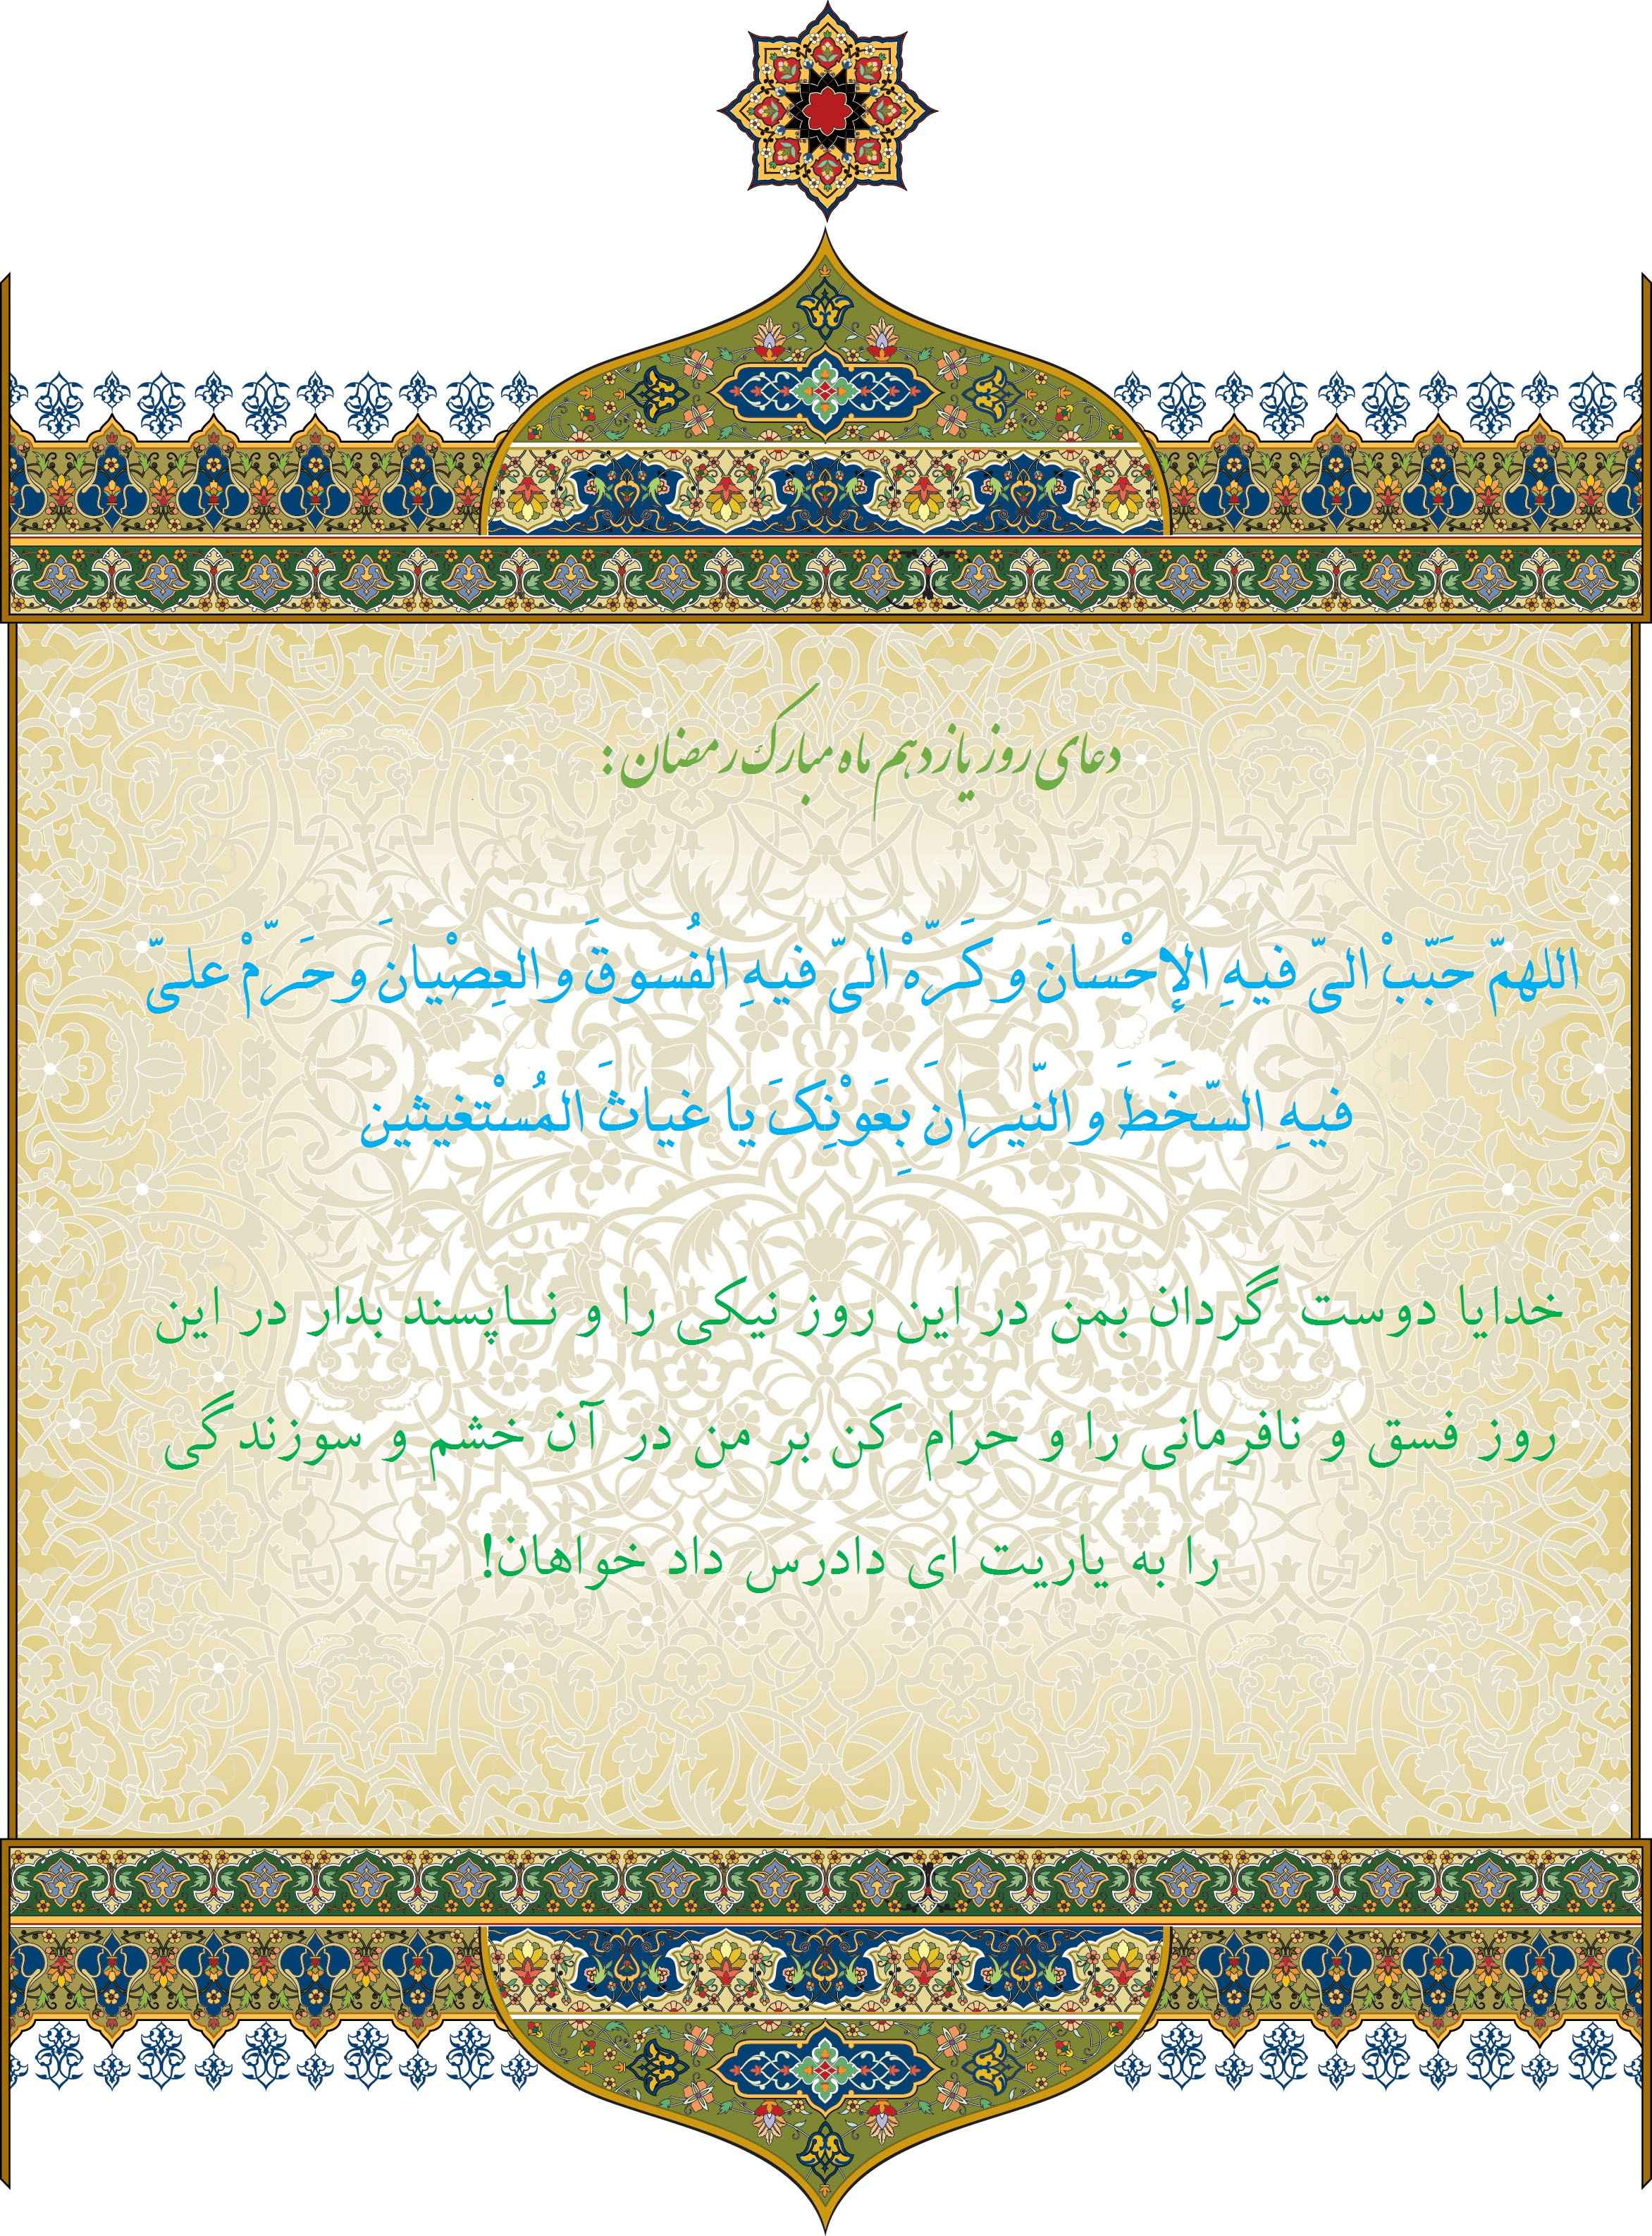 دعای روز یازدهم ماه مبارک رمضان:
اللهمّ حَبّبْ الیّ فیهِ الإحْسانَ و کَرّهْ الیّ فیهِ الفُسوقَ و العِصْیانَ و حَرّمْ علیّ
فیهِ السّخَطَ و النّیرانَ بِعَوْنِکَ یا غیاثَ المُسْتغیثین
خدایا دوست گردان بمن در این روز نیکی را و نـاپسند بدار در این
روز فسق و نافرمانی را و حرام کن بر من در آن خشم و سوزندگی
را به یاریت ای دادرس داد خواهان!